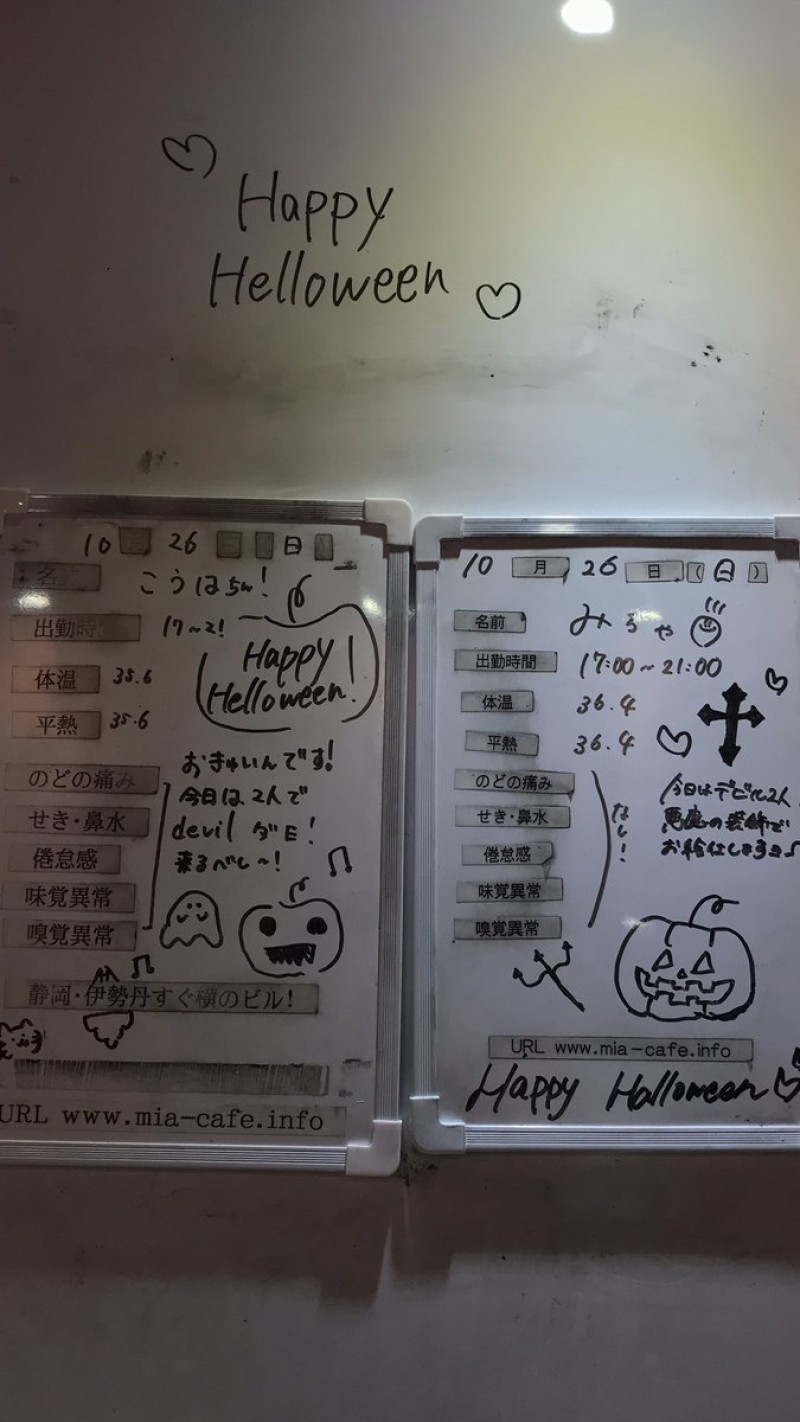 Happy
Helloween
10 26 日
名
こうはちゃん!
出勤時 17~21
Happy
Helloween!
体温 35.6
平熱 35.6
おきゅいんです!
今日は2人で
devil ダE!
来るべし~!
のどの痛み
せき・鼻水
倦怠感
味覚異常
嗅覚異常
静岡・伊勢丹すぐ横のビル!
URL www.mia-cafe.info
10 月 26 日 (日)
名前 みうや
出勤時間 17:00~21:00
体温 36.4
平熱 36.4
のどの痛み
せき・鼻水
倦怠感
味覚異常
嗅覚異常
なし!
今日はデビル2人
悪魔の装飾で
お給仕します♪
URL www.mia-cafe.info
Happy Halloween